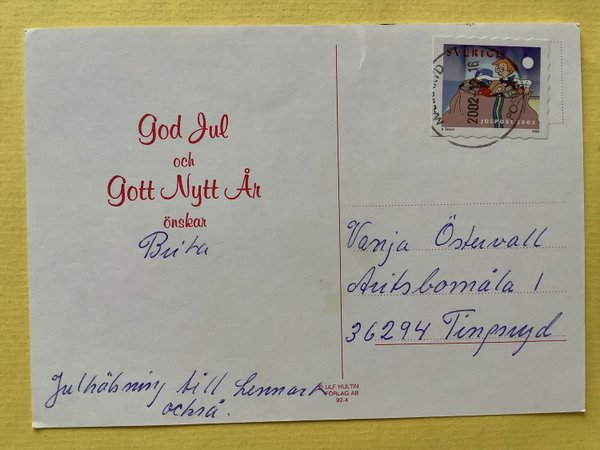 God Jul
och
Gott Nytt År
önskar
Brita
Julhälsning till Lennart
också.
SVERIGE
JULPOST 2002
2002
2002-12-16
Vanja Östervall
36294 Tingsryd
© ULF HULTIN
FÖRLAG AB
92-4